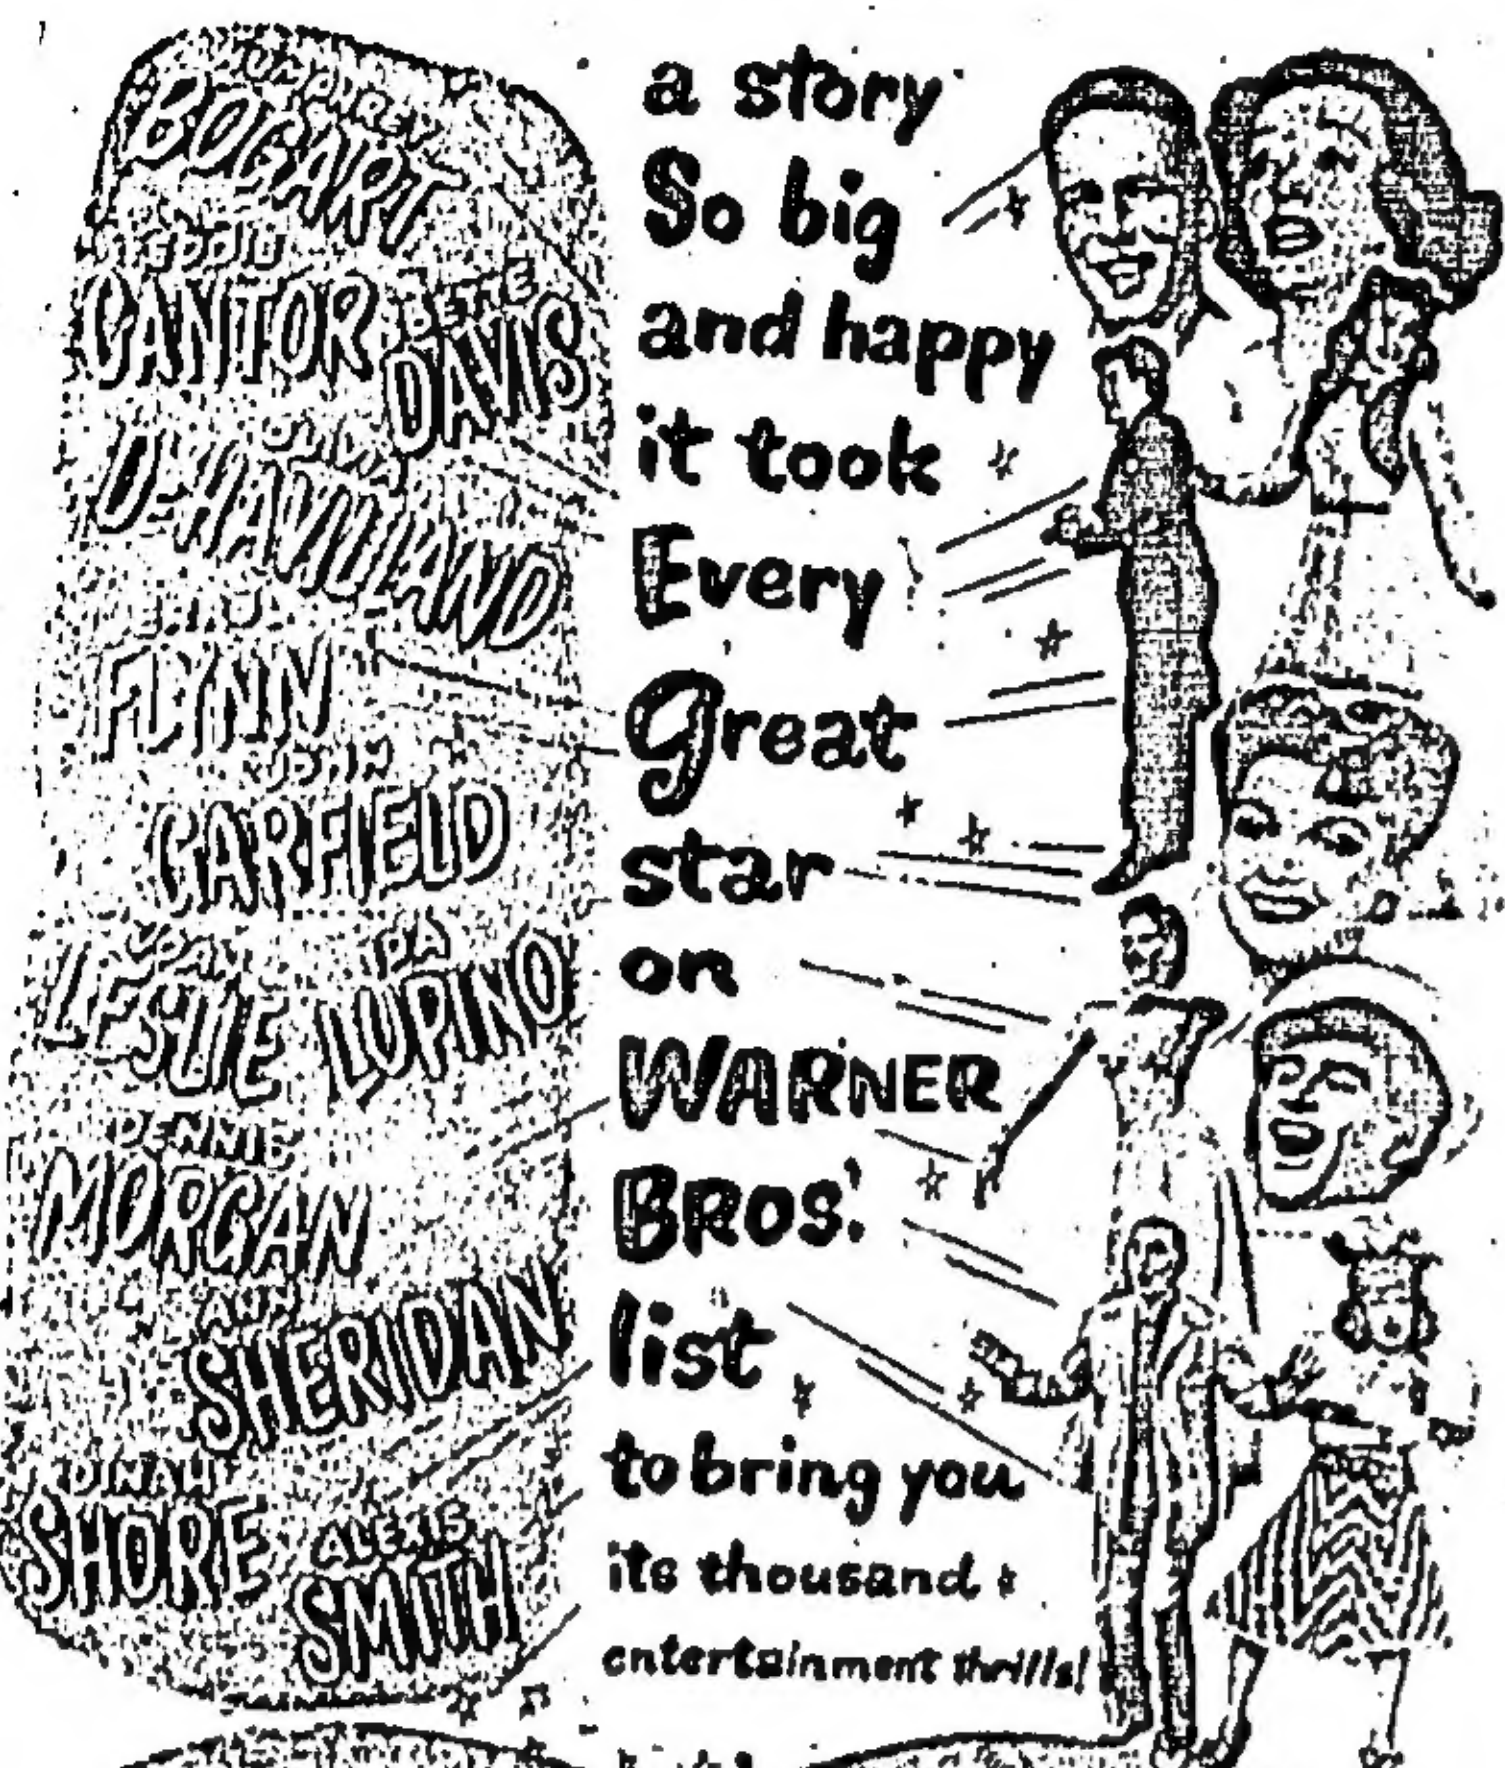 HUMPHREY
BOGART
EDDIE
CANTOR
BETTE
DAVIS
OLIVIA
DeHAVILLAND
ERROL
FLYNN
JOHN
GARFIELD
JOAN
LESLIE
IDA
LUPINO
DENNIS
MORGAN
ANN
SHERIDAN
DINAH
SHORE
ALEXIS
SMITH
a story
So big
and happy
it took
Every
Great
star
on
WARNER
BROS.'
list
to bring you
its thousand
entertainment thrills!